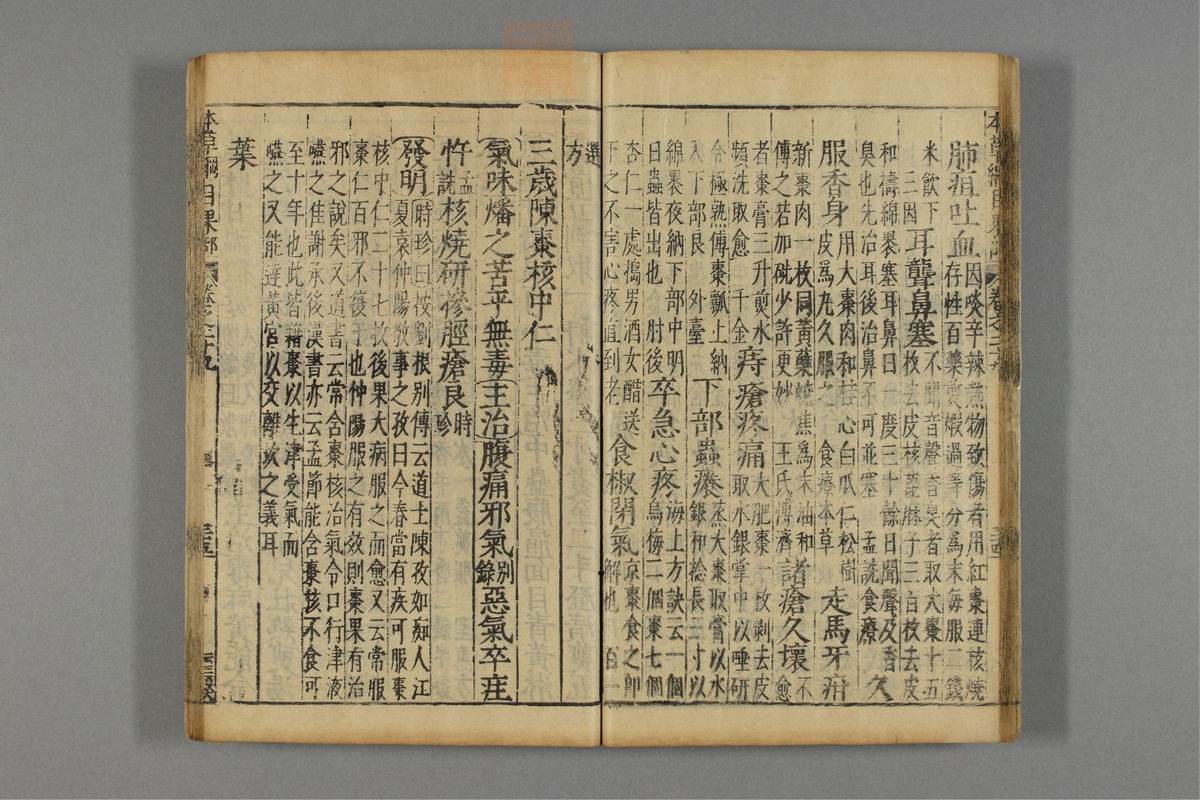 本草綱目果部 卷之二十九
肺疽吐血 因啖辛辣熱物致傷者用紅棗連核燒
存性百藥煎煆過等分爲末每服二錢
米飲下
三因 耳聾鼻塞 不聞音聲香臭者取大棗十五
枚去皮核蓖麻子三百枚去皮
和擣綿裹塞耳鼻日一度三十餘日聞聲及香
臭也先治耳後治鼻不可並塞 孟詵食療 久
服香身 用大棗肉和桂心白瓜仁松樹
皮爲丸久服之 食療本草 走馬牙疳
新棗肉一枚同黃蘗燒焦爲末油和
傅之若加砒少許更妙 王氏博濟 諸瘡久壞 不
愈
者棗膏三升煎水
頻洗取愈 千金 痔瘡疼痛 大肥棗一枚剝去皮
取水銀掌中以唾研
令極熟傅棗瓤上納
入下部良 外臺 下部蟲癢 蒸大棗取膏以水
銀和捻長三寸以
綿裹夜納下部中明
日蟲皆出也 肘後 卒急心疼 海上方訣云一個
烏梅二個棗七個
杏仁一處搗男酒女醋送
下之不害心疼直到老 食椒閉氣 京棗食之即
解也 百一
選
方
三歲陳棗核中仁
氣味燔之苦平無毒 主治腹痛邪氣 別錄 惡氣卒疰
忤 孟詵 核燒研摻脛瘡良 時珍
發明 時珍曰按劉根別傳云道士陳孜如痴人江
夏袁仲陽敬事之孜曰今春當有疾可服棗
核中仁二十七枚後果大病服之而愈又云常服
棗仁百邪不復干也仲陽服之有效則棗果有治
邪之說矣又道書云常含棗核治氣令口行津液
嚥之佳謝承後漢書亦云孟節能含棗核不食可
至十年也此皆藉棗以生津受氣而
嚥之又能達黃宮以交離坎之義耳
葉
本草綱目果部 卷之二十九